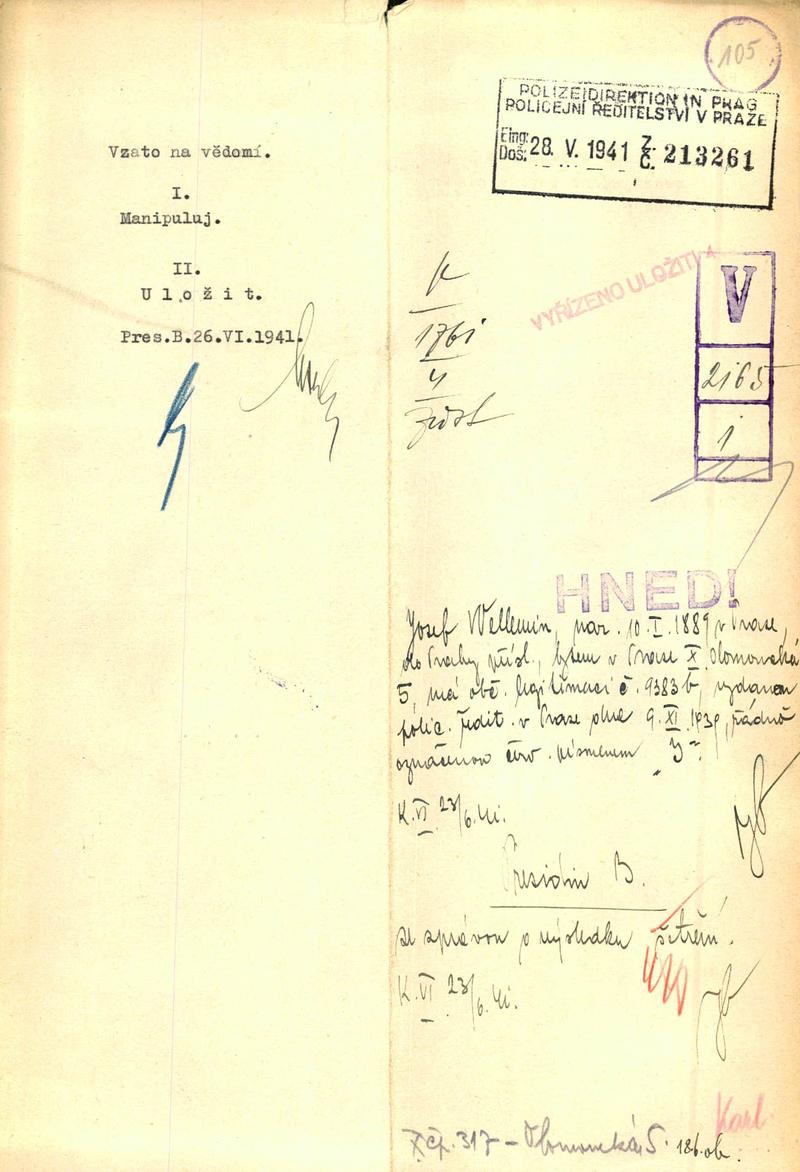 Vzato na vědomí.
I.
Manipuluj.
II.
U l o ž i t.
Pres.B.26.VI.1941.
105
POLIZEIDIREKTION IN PRAG
POLICEJNÍ ŘEDITELSTVÍ V PRAZE
Eing:
Doš: 28. V. 1941 Z. Č. 213261
VYŘÍZENO ULOŽITI
V
2165
1
K
1761
4
HNED!
Josef Wellemin, nar. 10.I.1889 v Praze,
do Prahy přísl., bytem v Praze X Olomoucká
5, má obč. legitimaci č. 9383 b, vydanou
polic. ředit. v Praze dne 9.XI.1939, řádně
označenou červ. písmenem „J“.
K.VI 23/6.41.
Presidiu B.
se zprávou o výsledku šetření.
K.VI 23/6.41.
Karl.
X čp. 317 - Olomoucká 5. 186.ob.